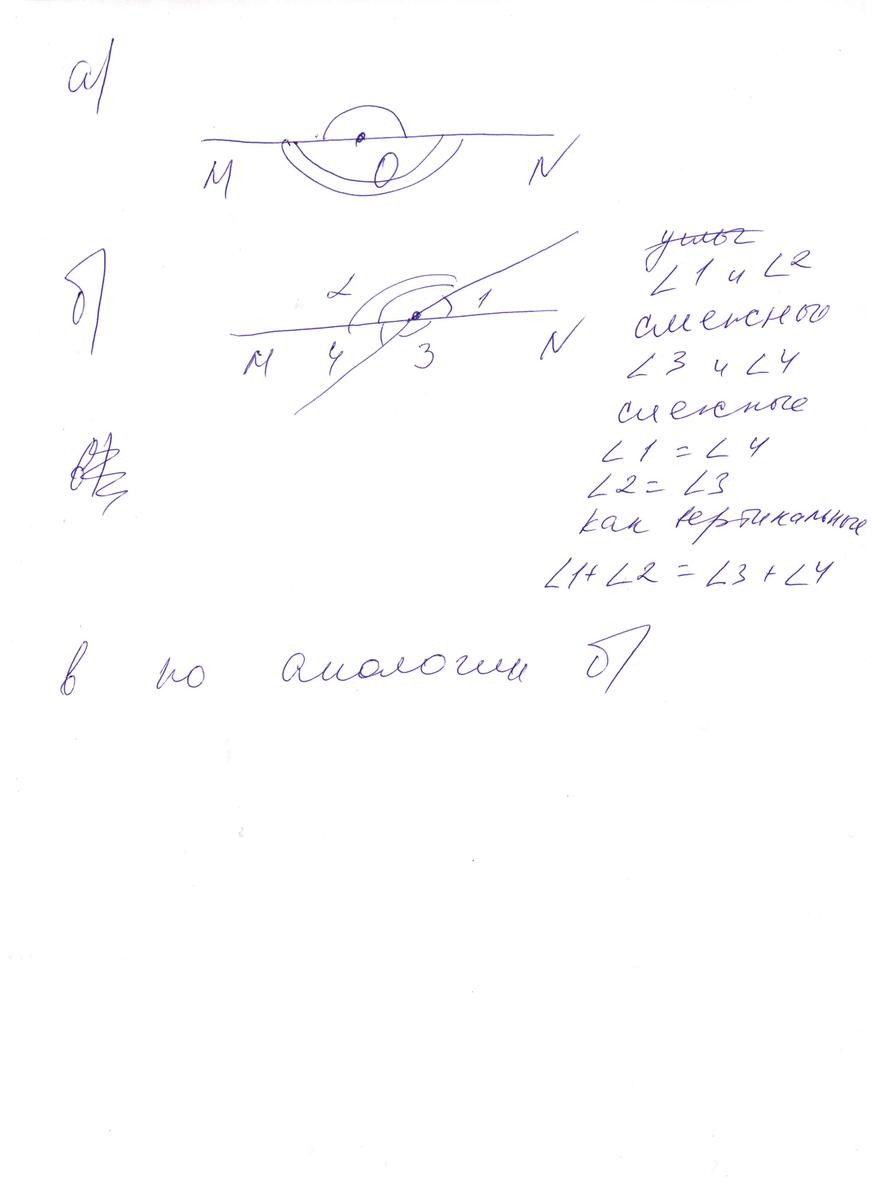 а)
M O N
б)
2 1
M 4 3 N
углы
∠1 и ∠2
смежные
∠3 и ∠4
смежные
∠1 = ∠4
∠2 = ∠3
как вертикальные
∠1+∠2 = ∠3+∠4
в по аналогии б)